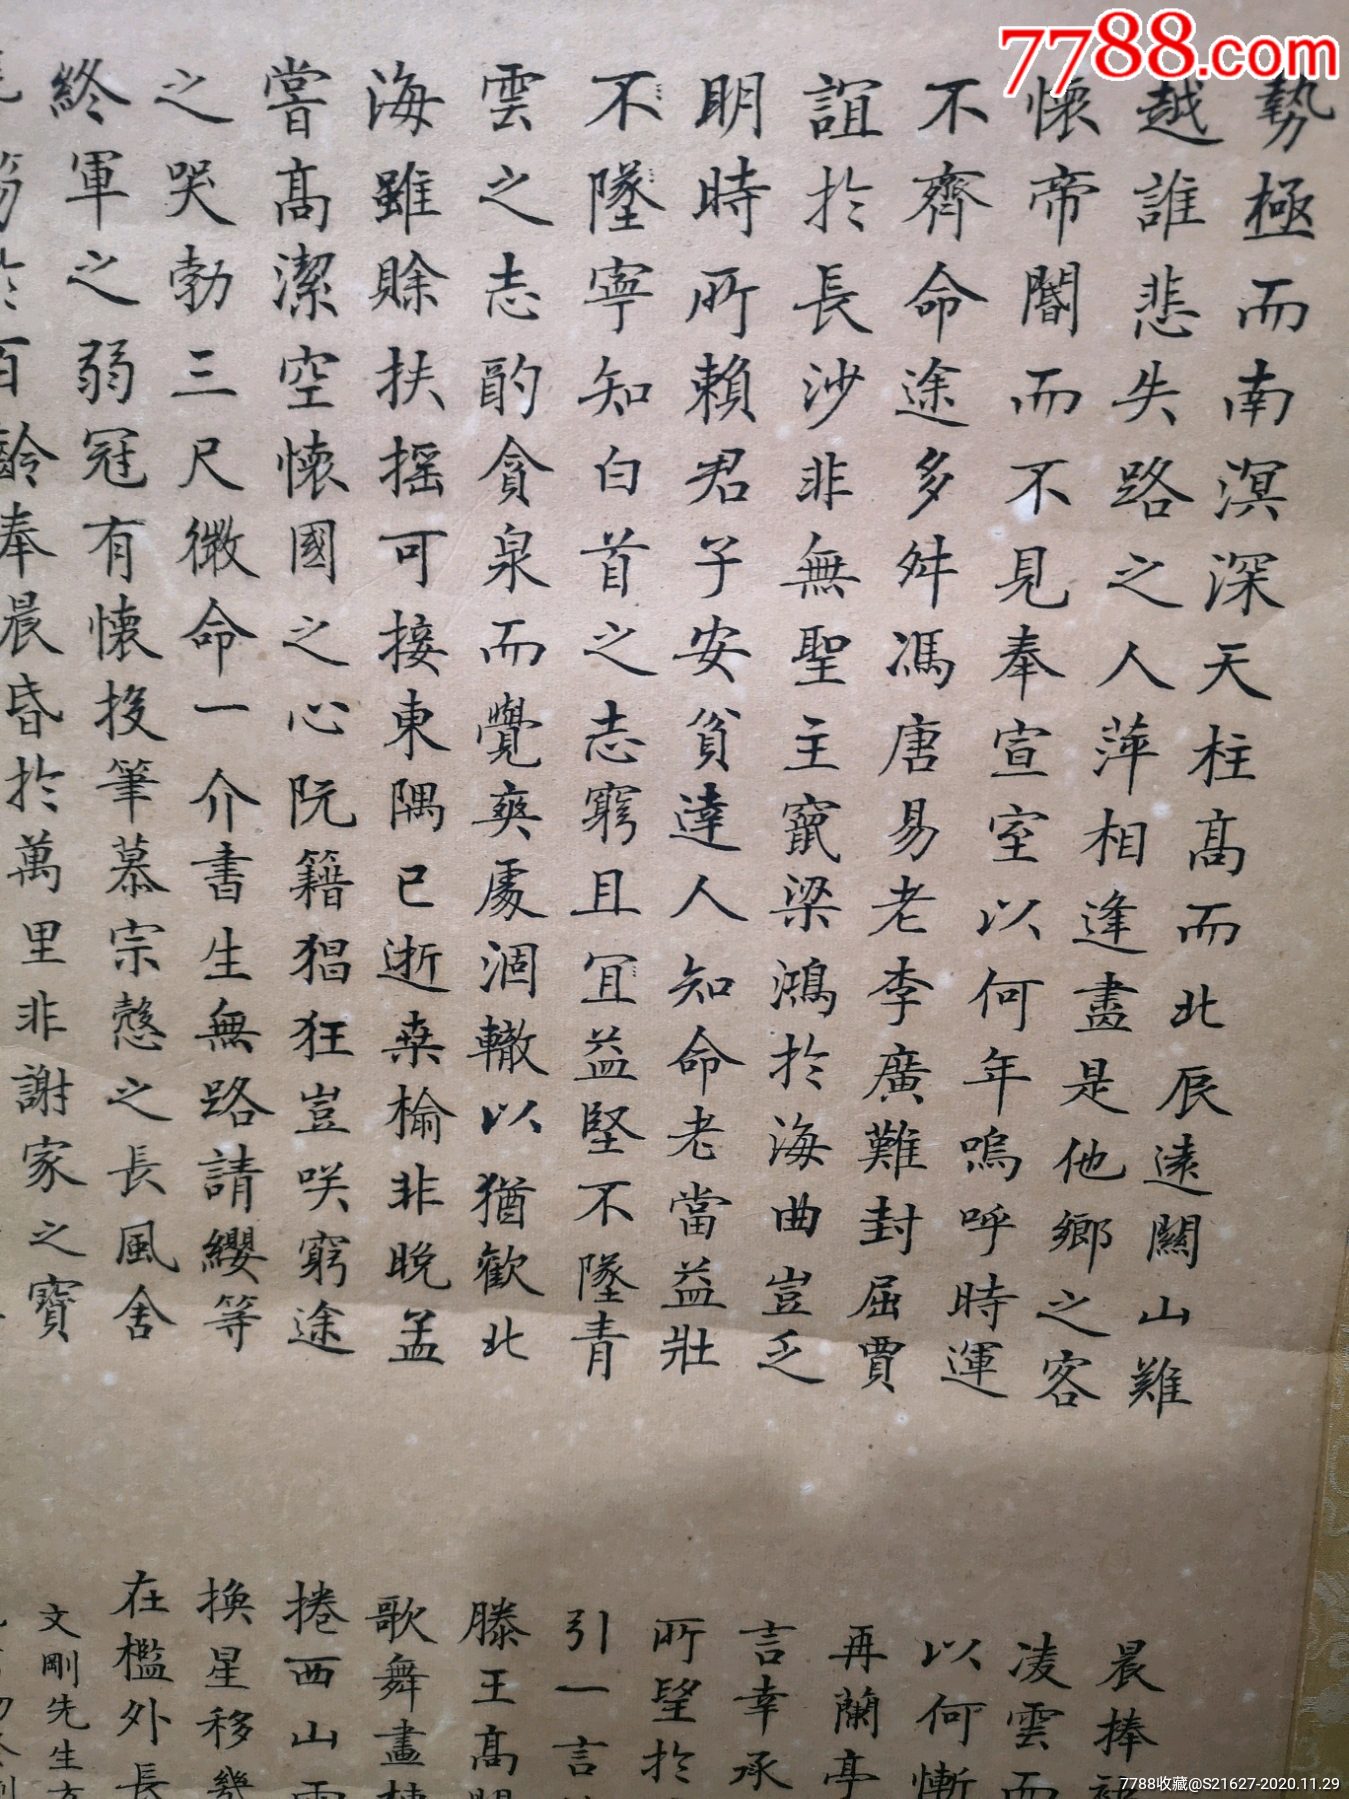 7788.com
勢極而南溟深天柱髙而北辰遠關山難
越誰悲失路之人萍相逢盡是他鄉之客
懷帝閽而不見奉宣室以何年嗚呼時運
不齊命途多舛馮唐易老李廣難封屈賈
誼於長沙非無聖主竄梁鴻於海曲豈乏
明時所賴君子安貧達人知命老當益壯
不墜寧知白首之志窮且宜益堅不墜青
雲之志酌貪泉而覺爽處涸轍以猶歡北
海雖賒扶摇可接東隅已逝桒榆非晚孟
嘗髙潔空懷國之心阮籍猖狂豈咲窮途
之哭勃三尺微命一介書生無路請纓等
終軍之弱冠有懷投筆慕宗慤之長風舍
笏於百齡奉晨昏於萬里非謝家之寶
晨捧
凌雲而
以何慚
再蘭亭
言幸承
所望於
引一言
滕王髙
歌舞畫
捲西山
換星移
在檻外長
文剛先生
7788收藏@S21627-2020.11.29